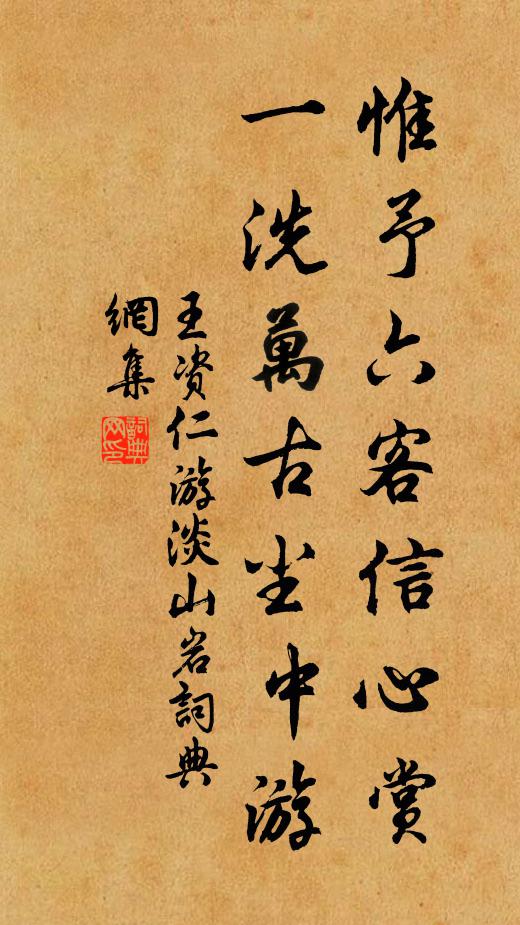 惟予六客信心賞
一洗萬古尘中游
王资仁游淡山岩詞典
網集
詞典网印